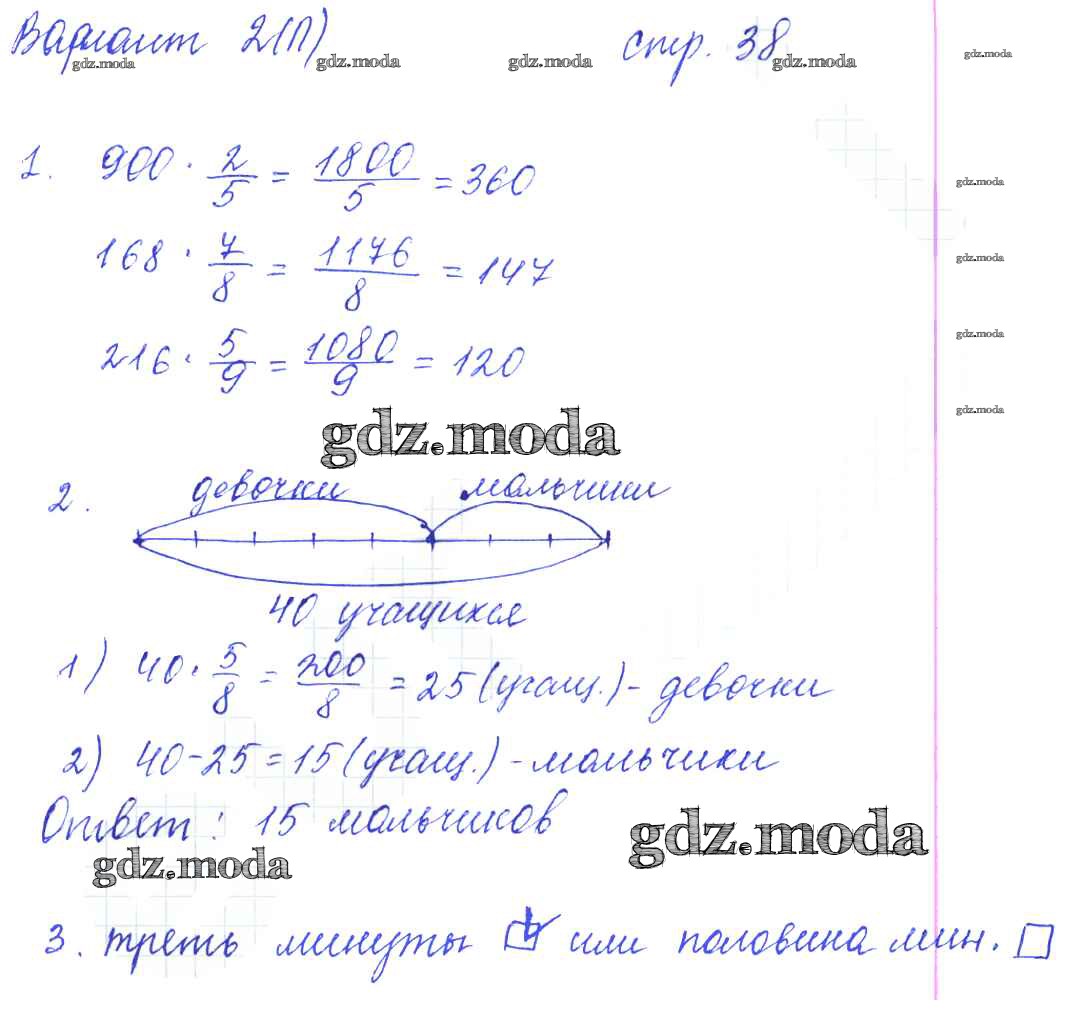 Вариант 2(П) стр. 38
gdz.moda gdz.moda gdz.moda gdz.moda gdz.moda
1. 900 · 2/5 = 1800/5 = 360
gdz.moda
168 · 7/8 = 1176/8 = 147
gdz.moda
216 · 5/9 = 1080/9 = 120
gdz.moda
gdz.moda
gdz.moda
2. девочки мальчики
40 учащихся
1) 40 · 5/8 = 200/8 = 25 (учащ.) - девочки
2) 40 - 25 = 15 (учащ.) - мальчики
Ответ: 15 мальчиков
gdz.moda
gdz.moda
3. треть минуты или половина мин.